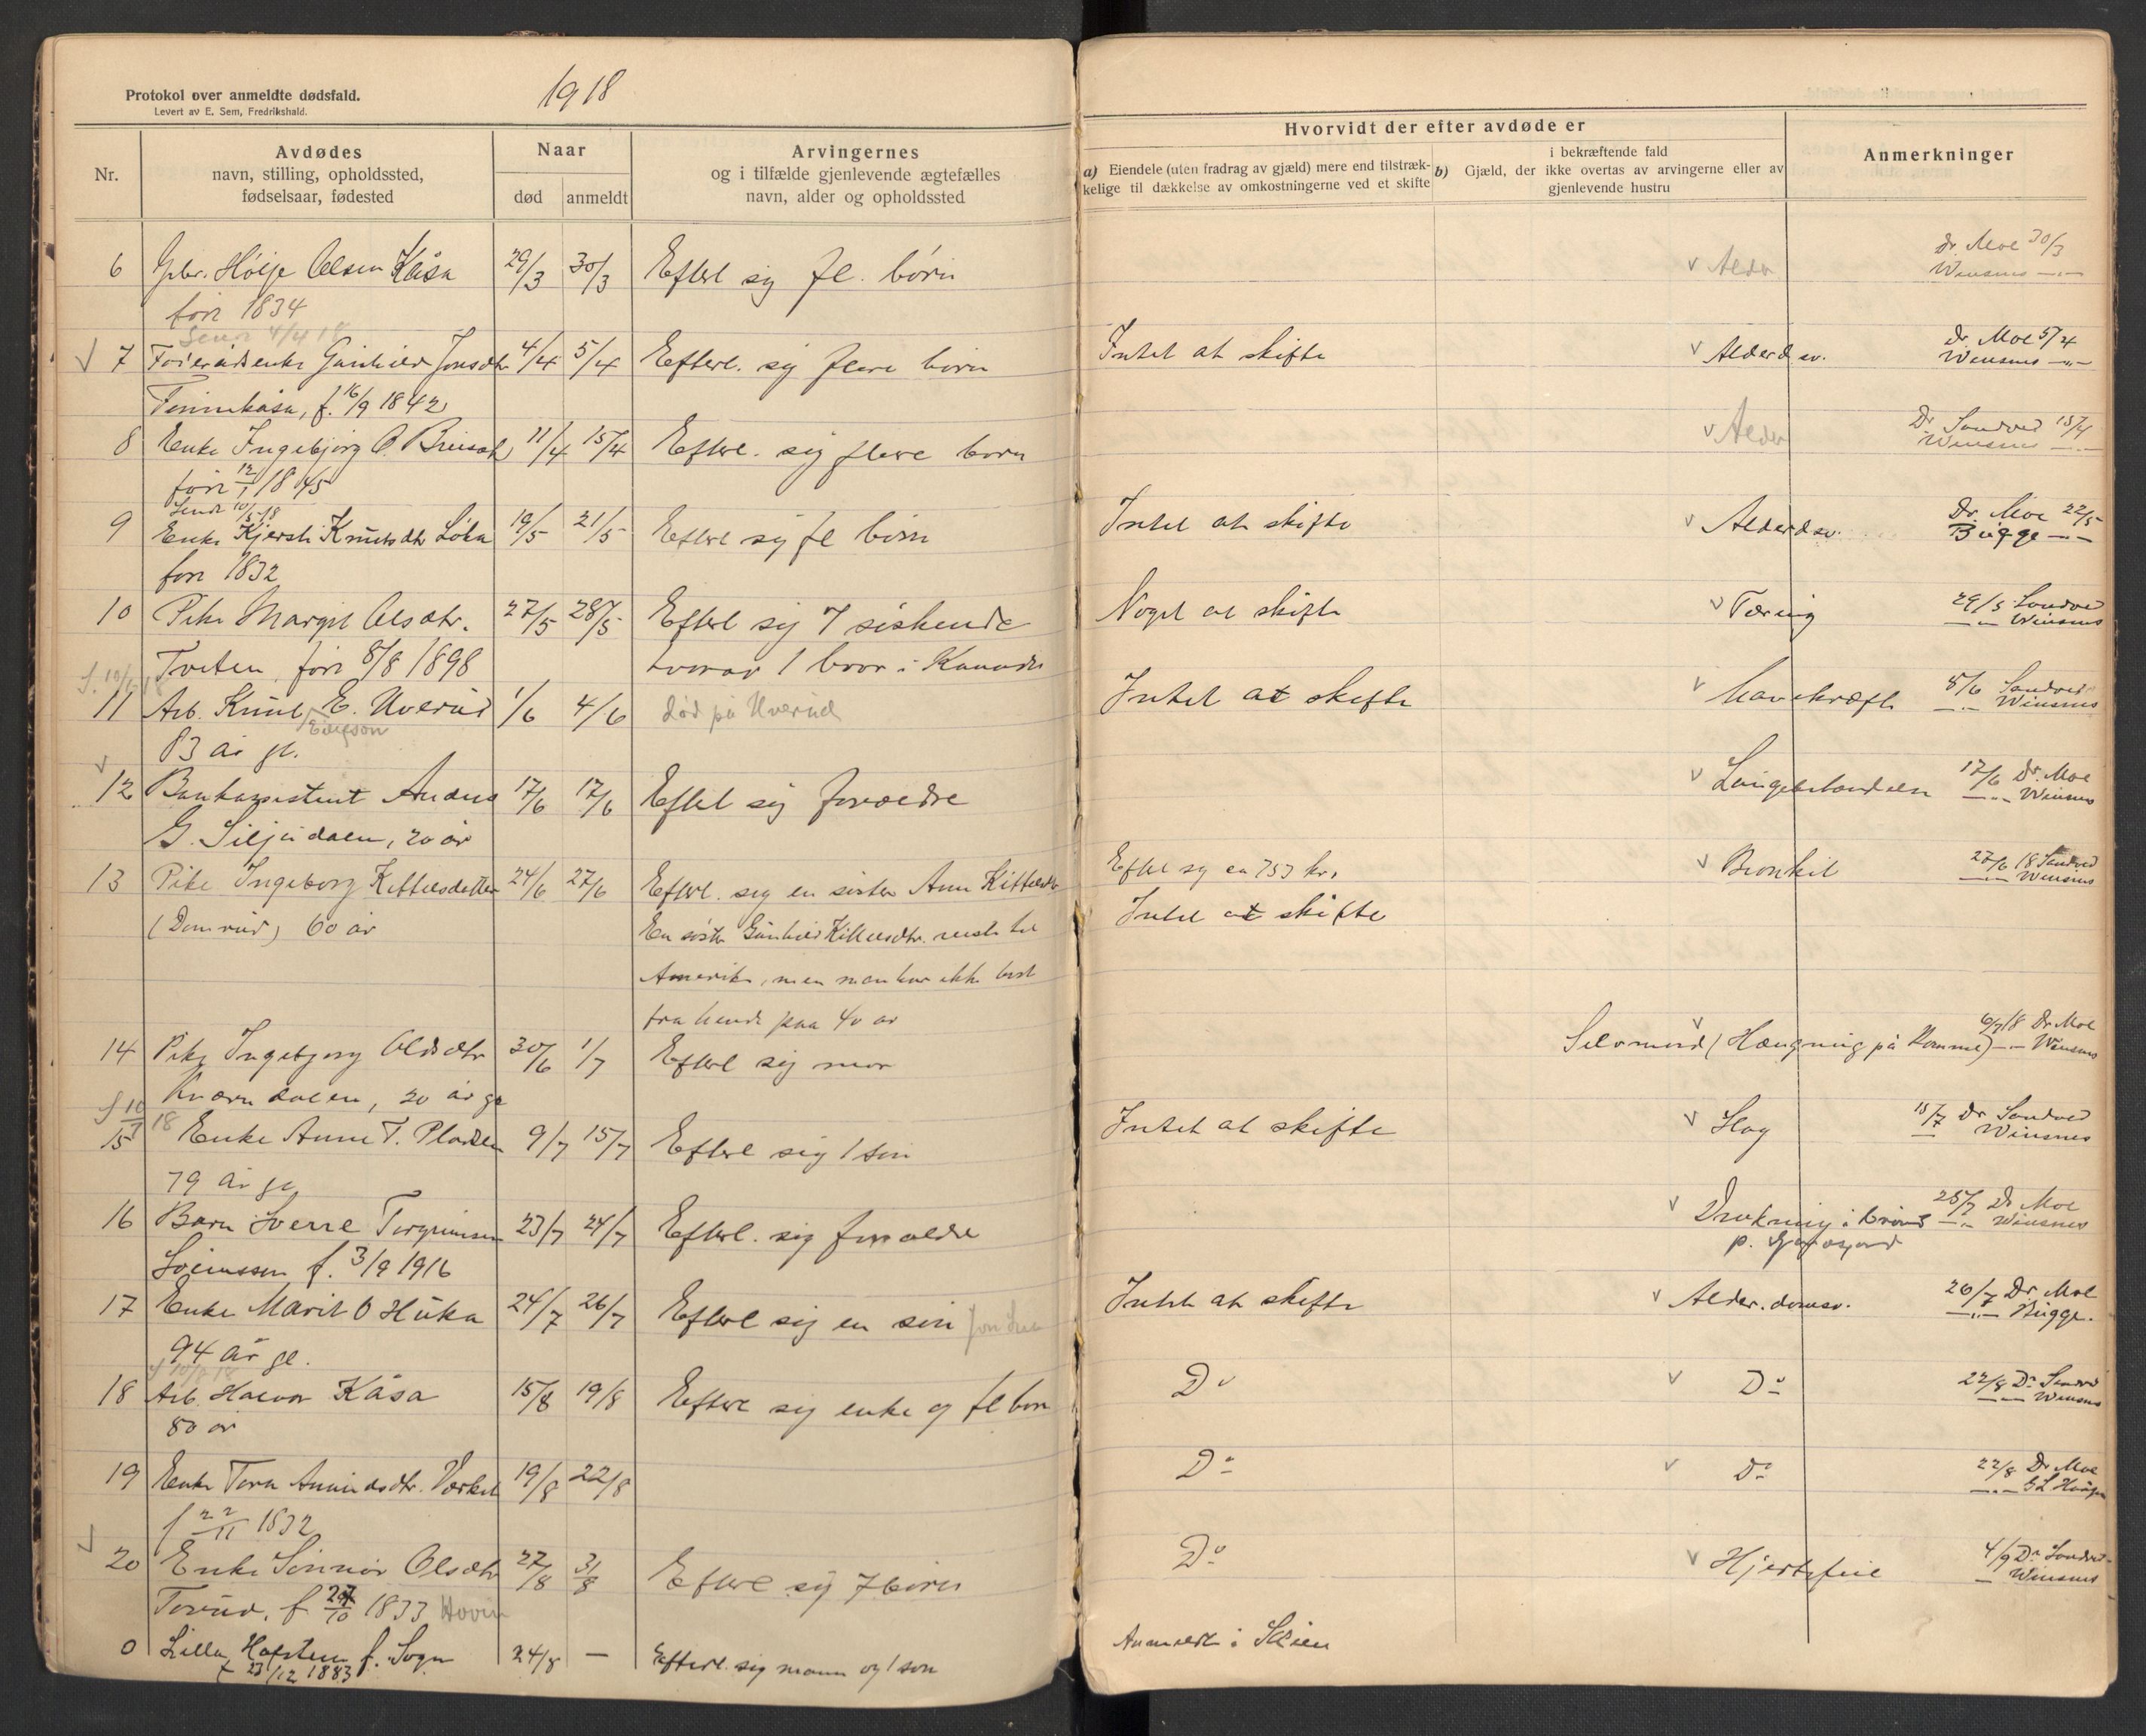 1918
Protokol over anmeldte dødsfald.
Levert av E. Sem, Fredrikshald.
Nr.
Avdødes
navn, stilling, opholdssted,
fødselsaar, fødested
Naar
død
anmeldt
Arvingernes
og i tilfælde gjenlevende ægtefælles
navn, alder og opholdssted
Hvorvidt der efter avdøde er
a) Eiendele (uten fradrag av gjæld) mere end tilstræk-
kelige til dækkelse av omkostningerne ved et skifte
i bekræftende fald
b) Gjæld, der ikke overtas av arvingerne eller av
gjenlevende hustru
Anmerkninger
6 Gbr. Høije Olsen Kåsa 29/3 30/3 Efterl sig fl. børn v Alder Dr. Moe 30/3
Winsnes —"—
født 1834
Sendt 4/4 18
v 7 Gunhild Jonsdtr 4/4 5/4 Efterl. sig flere børn Intet at skifte v Alderdsv. Dr. Moe 5/4
Winsnes —"—
f. 16/9 1842
8 Enke Ingebjørg O. 11/4 15/4 Efterl. sig flere børn v Alder Dr Sandved 15/4
Winsnes —"—
født 12/1 1845
Sendt 10/5 18
9 Enke Kjersti Knutsdtr Løka 19/5 21/5 Efterl sig fl børn Intet at skifte v Alderdsv. Dr. Moe 22/5
Bugge —"—
født 1832
10 Pike Margit Olsdtr. 27/5 28/5 Efterl sig 7 søskende Noget at skifte v Tæring 29/5 Sandved
—"— Winsnes
Tveten, født 8/8 1898 hvorav 1 bor i Kanada
11 Arb. Knut E. Uverud 1/6 4/6 død på Uverud Intet at skifte v Mavekræft 5/6 Sandved
—"— Winsnes
83 år gl.
v
12 Bankassistent 17/6 17/6 Efterl sig forældre v 17/6 Dr. Moe
—"— Winsnes
G. Siljudalen, 20 år
13 Pike Ingeborg Kittelsdatter 24/6 27/6 Efterl. sig en søster Anne Kittelsdtr Efterl sg ca 753 kr. v Bronkit 27/6 18 Sandved
—"— Winsnes
(Domrud) 60 år En søster Gunhild Kittelsdtr. reiste til Intet at skifte
Amerika, men man har ikke hørt
fra hende paa 40 år
14 Pike Ingebjørg Olsdtr 30/6 1/7 Efterl sig mor v Selvmord (Hængning på 6/7 18 Dr Moe
—"— Winsnes
Kværndalen, 20 år gl
15 Enke Anne T. 9/7 15/7 Efterl sig 1 søn Intet at skifte v Slag 15/7 Dr Sandved
— Winsnes
79 år gl
16 Barn Sverre Torgrimsen 23/7 24/7 Efterl. sig forældre v Drukning i brønd 25/7 Dr Moe
—"— Winsnes
f. 3/9 1916
17 Enke Marit O Huka 24/7 26/7 Efterl sig en søn Intet at skifte v Alder.domsv. 26/7 Dr. Moe
—"— Bugge.
94 år gl.
18 Arb. Halvor Kåsa 15/8 19/8 Efterl sig enke og fl børn Do v Do 22/8 Dr Sandved
—"— Winsnes
80 år
19 Enke Tora 19/8 22/8 Do v Do 22/8 Dr Moe
f 22/11 1832
v
20 Enke Synnøv Olsdtr 27/8 31/8 Efterl sig 7 børn Do v Hjertefeil 4/9 Dr Sandved
— Winsnes
Torud, f 27/10 1833 Hovin
0 Lilla Hofstein f. Sogn 24/8 — Efterl. sig mann og 1 søn Anmeldt i Skien
f 23/12 1883